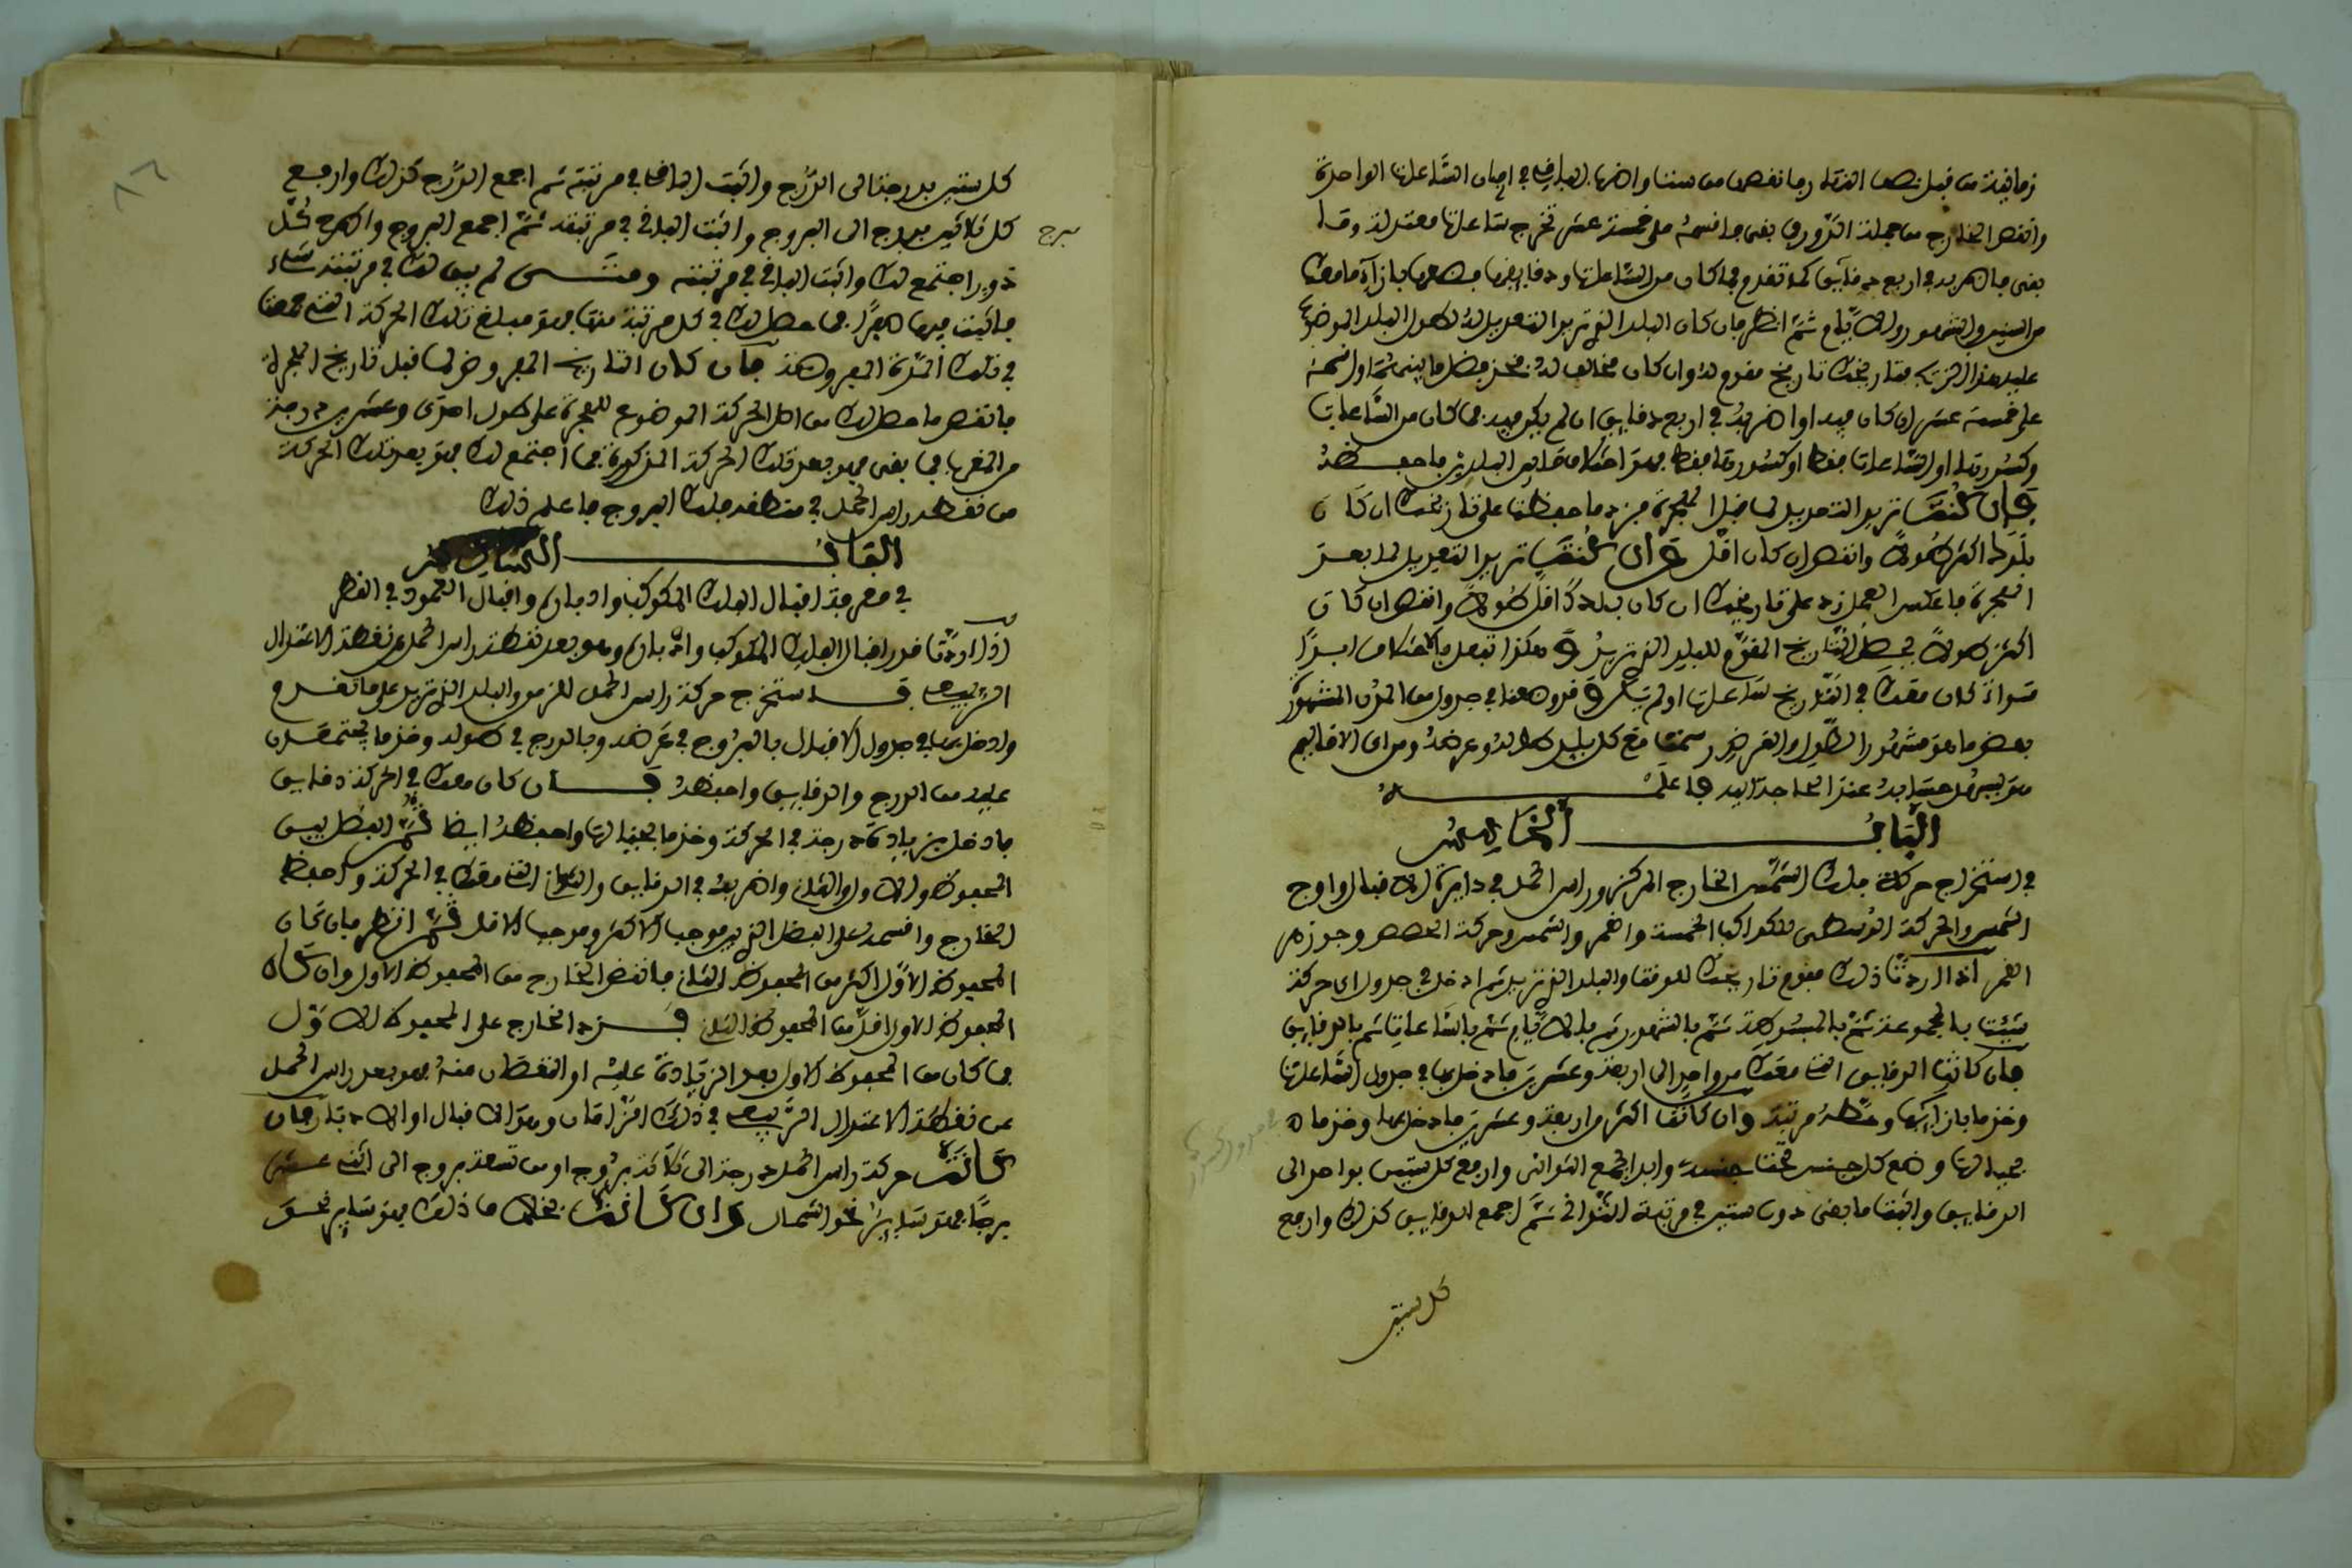 زمانية من قبل نصف النهار وما نقص من ستة واضرب الباقي في ازمان الساعات الواحدة
وانقص الخارج من جملة الدور فما بقى فاقسمه على خمسة عشر تخرج ساعات معتدلة وما
بقى فاضربه في اربع دقايق كما تقدم فما كان من الساعات ودقايقها فضعها بازاء ما معك
من السنين والشهور والايام ثم انظر فان كان البلد الذي تريد التعديل له طول البلد الموضوع
عليه هذا الزيج فتاريخك تاريخ مقوم له وان كان مخالف له فخذ فضل ما بينهما واقسمه
على خمسة عشر ان كان فيه او اضربه في اربع دقايق ان لم يكن فيه فما كان من الساعات
وكسورها او الساعات فقط او كسورها فقط فهو اختلاف ما بين البلدين فاحفظه
وان كنت تريد التعديل لما قبل الهجرة فزد ما حفظت على تاريخك ان كان
بلدك اكثر طولا وانقص ان كان اقل وان كنت تريد التعديل لما بعد
الهجرة فاعكس العمل زد على تاريخك ان كان بلدك اقل طولا وانقص ان كان
اكثر طولا يحصل التاريخ المقوم للبلد الذي تريد وهكذا تفعل بالاختلاف ابدا
سواء كان معك في التاريخ ساعات او لم تكن وقد وضعنا في جدول من المدن المشهورة
بعض ما هو مشهور الطول والعرض رسمنا مع كل بلد طوله وعرضه ومن اى الاقاليم
هو ليسهل حسابه عند الحاجة اليه فاعلمه
الباب الخامس
في استخراج حركة فلك الشمس الخارج المركز وراس الحمل في دايرة الاقبال واوج
الشمس والحركة الوسطى للكواكب الخمسة والقمر والشمس وحركة الحصص وجوزهر
القمر اذا اردت ذلك فقوم تاريخك للوقت والبلد الذي تريد ثم ادخل في جدول اى حركة
شيت بالمجموعة ثم بالمبسوطة ثم بالشهور ثم بالايام ثم بالساعات ثم بالدقايق
فان كانت الدقايق التي معك من واحد الى اربعة وعشرين فادخل بها في جدول الساعات
وخذ ما بازايها وحطه مرتبة وان كانت اكثر من اربعة وعشرين فادخل بها وخذ ما
بحيالها وضع كل جنس تحت جنسه وابدا اجمع الثواني وارفع كل ستين بواحد الى
الدقايق واثبت ما بقى دون ستين في مرتبة الثواني ثم اجمع الدقايق كذلك وارفع
كل ستين
كل ستين بدرجة الى الدرج واثبت الباقي في مرتبته ثم اجمع الدرج كذلك وارفع
كل ثلاثين ببرج الى البروج واثبت الباقي في مرتبته ثم اجمع البروج واطرح كل
برج
دور اجتمع لك واثبت الباقي في مرتبته ومتى لم يبق لك في مرتبة شىء
فاثبت فيها صفرا فما حصل لك في كل مرتبة منها فهو مبلغ تلك الحركة التي قصدت
في تلك المدة المفروضة فان كان التاريخ المفروض لما قبل تاريخ الهجرة
فانقص ما حصل لك من اصل الحركة الموضوع للهجرة على طول احدى وعشرين درجة
من المغرب فما بقى فهو بعد تلك الحركة المذكورة فما اجتمع لك فهو بعد تلك الحركة
من نقطة راس الحمل في منطقة فلك البروج فاعلم ذلك
الباب السادس
في معرفة اقبال الفلك المكوكب وادباره واقبال العمود في القطر
اذا اردت قدر اقبال الفلك المكوكب وادباره وهو بعد نقطة راس الحمل من نقطة الاعتدال
الربيعي فاستخرج حركة راس الحمل للزمن والبلد الذي تريد على ما تقدم
وادخل بها في جدول الاقبال بالبروج في عرضه وبالدرج في طوله وخذ ما يجتمعان
عليه من الدرج والدقايق واحفظه فان كان معك في الحركة دقايق
فادخل بزيادة درجة في الحركة وخذ ما بحيالها واحفظه ايضا ثم خذ الفضل بين
المحفوظ الاول والثاني واضربه في الدقايق والثواني التي معك في الحركة واحفظ
الخارج واقسمه على الفضل الذي بين موجب الاكثر وموجب الاقل ثم انظر فان كان
المحفوظ الاول اكثر من المحفوظ الثاني فانقص الخارج من المحفوظ الاول وان كان
المحفوظ الاول اقل من المحفوظ الثاني فزد الخارج على المحفوظ الاول
فما كان من المحفوظ الاول بعد الزيادة عليه او النقصان منه فهو بعد راس الحمل
عن نقطة الاعتدال الربيعي في ذلك الزمان وهو الاقبال او الادبار فان
كانت حركة راس الحمل من درجة الى ثلاثة بروج او من تسعة بروج الى اثني عشر
برجا فهو ساير نحو الشمال وان كانت بخلاف ذلك فهو ساير نحو